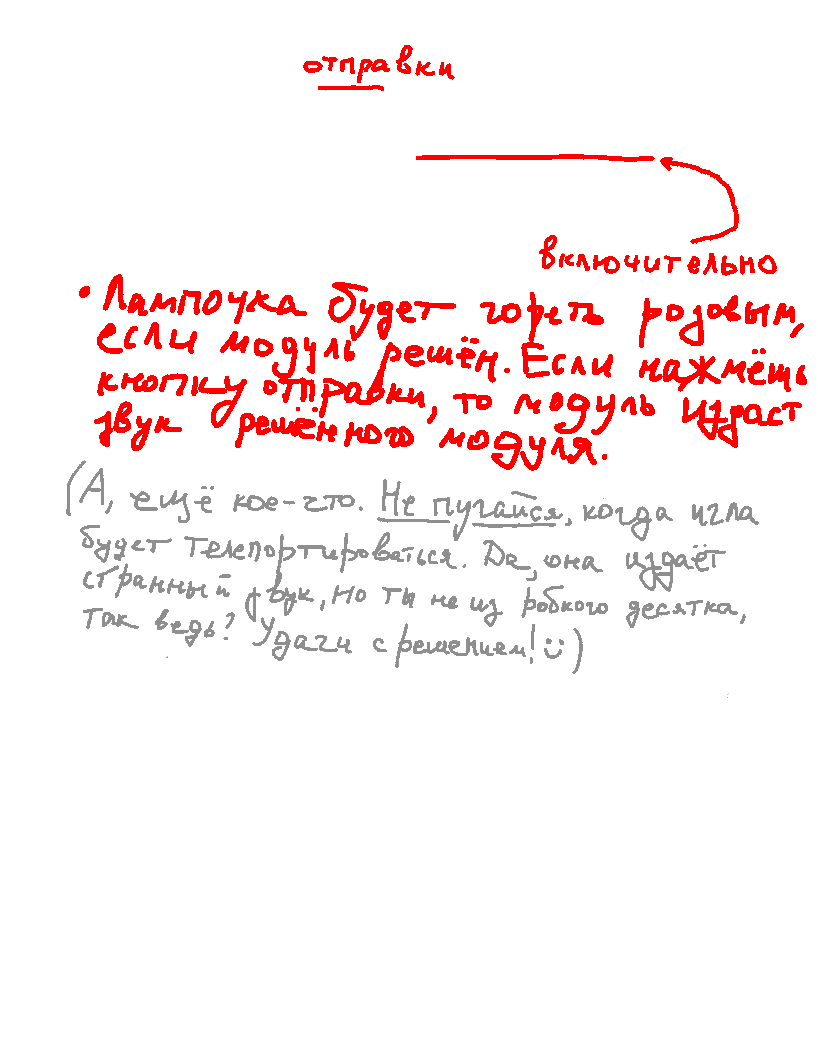 отправки
включительно
• Лампочка будет гореть розовым,
если модуль решён. Если нажмёшь
кнопку отправки, то модуль издаст
звук решённого модуля.
(А, ещё кое-что. Не пугайся, когда игла
будет телепортироваться. Да, она издаёт
странный звук, но ты не из робкого десятка,
так ведь? Удачи с решением! :))